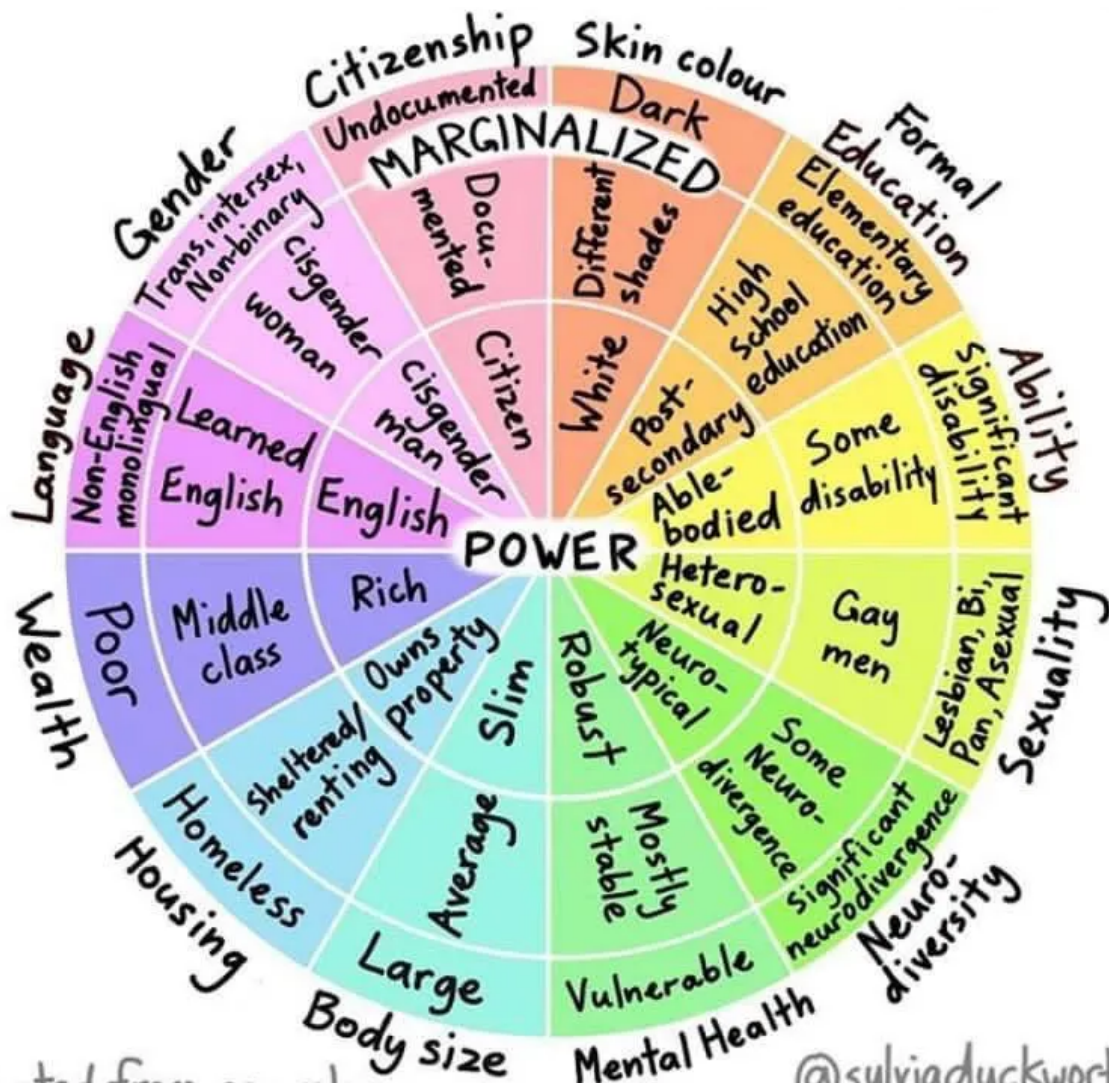 Citizenship
Undocumented
Docu-
mented
Citizen
Skin colour
Dark
Different
shades
White
Formal
Education
Elementary
education
High
school
education
Post-
secondary
Ability
Significant
disability
Some
disability
Able-
bodied
Sexuality
Lesbian, Bi,
Pan, Asexual
Gay
men
Hetero-
sexual
Neuro-
diversity
Significant
neurodivergence
Some
Neuro-
divergence
Neuro-
typical
Mental Health
Vulnerable
Mostly
stable
Robust
Body size
Large
Average
Slim
Housing
Homeless
Sheltered/
renting
Owns
property
Wealth
Poor
Middle
class
Rich
Language
Non-English
monolingual
Learned
English
English
Gender
Trans, intersex,
Non-binary
Cisgender
woman
Cisgender
man
MARGINALIZED
POWER
@sylviaduckwor